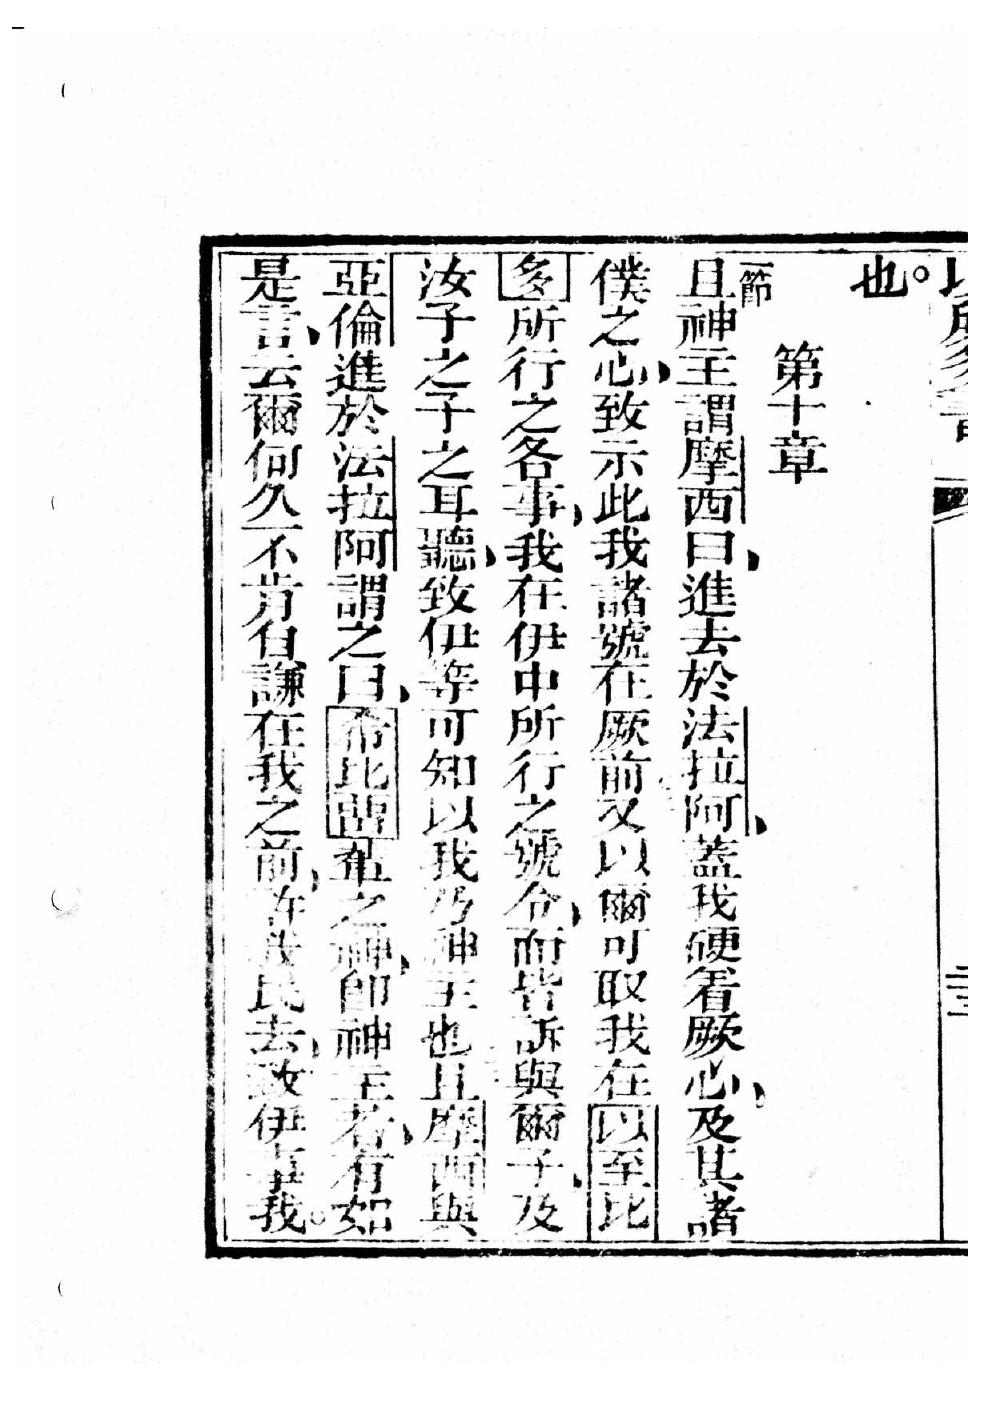 也。
第十章
一節
且神主謂摩西曰、進去於法拉阿、蓋我硬着厥心、及其諸
僕之心、致示此我諸號在厥前又以爾可取我在以至比
多所行之各事、我在伊中所行之號令、而皆訴與爾子、及
汝子之子之耳聽、致伊等可知以我乃神主也且摩西與
亞倫進於法拉阿謂之曰、希比畱輩之神、即神主者、有如
是言、云爾何久不肯自謙在我之前、許我民去、致伊事我。